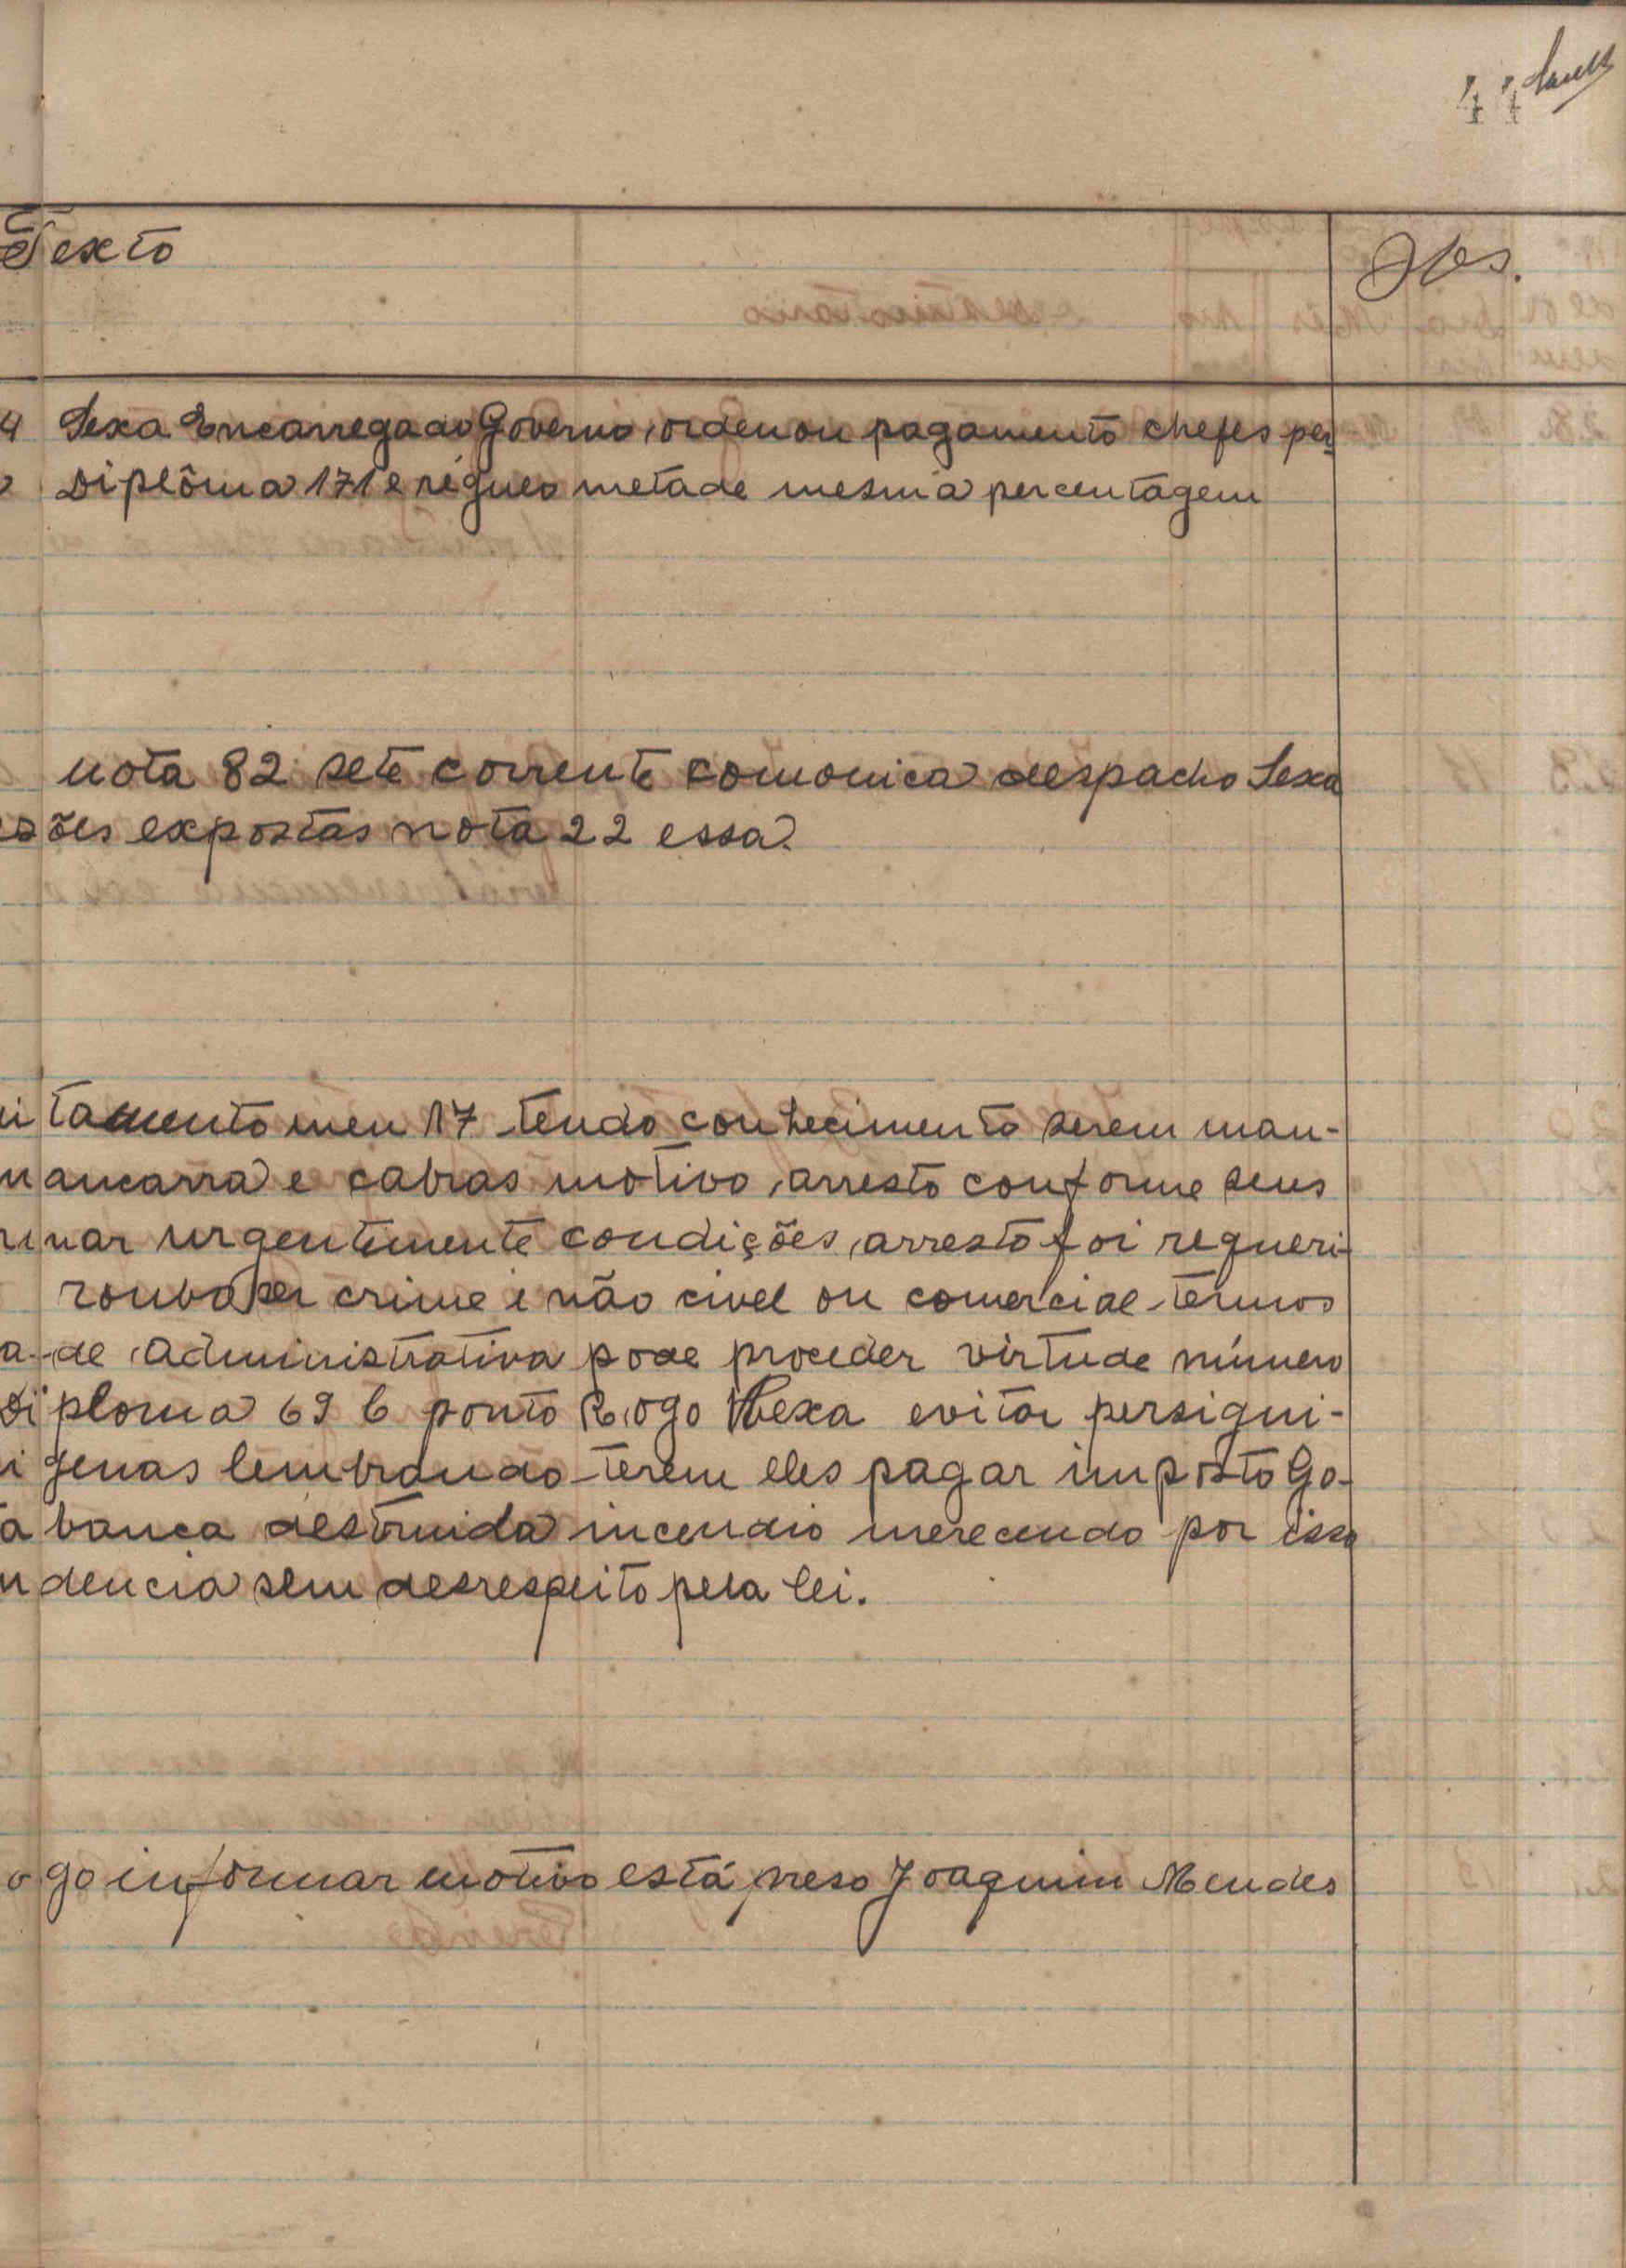 44
Texto
Obs.
4 Sexa Encarregado Governo, ordenou pagamento chefes per-
o Diplôma 171 e régulos metade mesma percentagem
nota 82 sete corrente comonica despacho Sexa
sões expostas nota 22 essa.
itamento meu 17 tendo conhecimento serem man-
ancarra e cabras motivo, arresto conforme seus
nar urgentemente condições, arresto foi requeri-
roubo ser crime e não civel ou comercial termos
a-de, administrativa pode proceder virtude número
Diploma 69 b ponto Rogo Vexa evitar persigui-
igenas lembrando terem eles pagar imposto Go-
abanca destruida incendio merecendo por isso
ndencia sem desrespeito pela lei.
ogo informar motivo está preso Joaquim Mendes